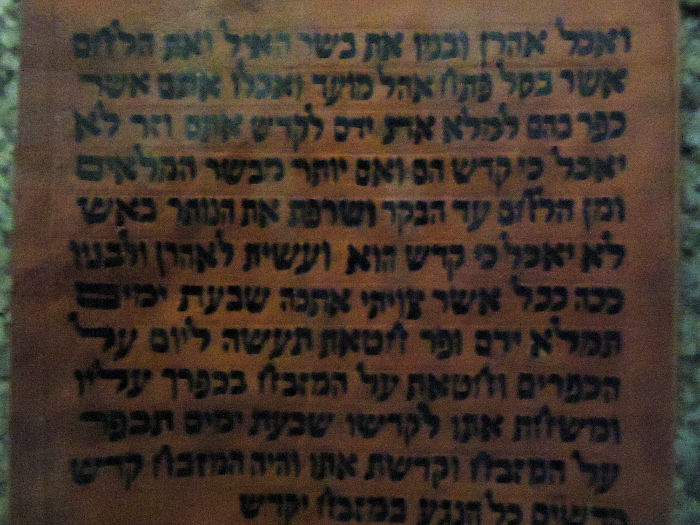 ואכל אהרן ובניו את בשר האיל ואת הלחם
אשר בסל פתח אהל מועד ואכלו אתם אשר
כפר בהם למלא את ידם לקדש אתם וזר לא
יאכל כי קדש הם ואם יותר מבשר המלאים
ומן הלחם עד הבקר ושרפת את הנותר באש
לא יאכל כי קדש הוא ועשית לאהרן ולבניו
ככה ככל אשר צויתי אתכה שבעת ימים
תמלא ידם ופר חטאת תעשה ליום על
הכפרים וחטאת על המזבח בכפרך עליו
ומשחת אתו לקדשו שבעת ימים תכפר
על המזבח וקדשת אתו והיה המזבח קדש
קדשים כל הנגע במזבח יקדש